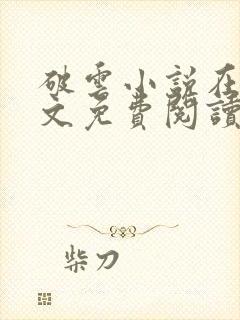 破雲小說在
文免費閱讀
柴刀